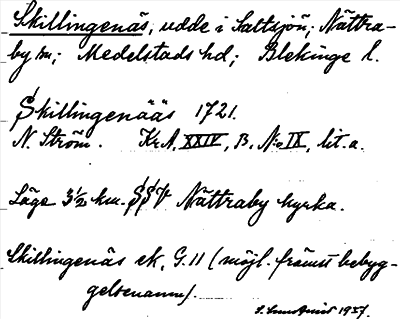 Skillingenäs, udde i Saltsjön; Nättra-
by sn; Medelstads hd; Blekinge l.
Skillingenääs 1721.
N. Ström. Kr.A. XXIV, B. No IX, lit. a.
Läge 3½ km. SSV Nättraby kyrka.
Skillingenäs ek. G. 11 (möjl. främst bebyg-
gelsenamn).
1957.